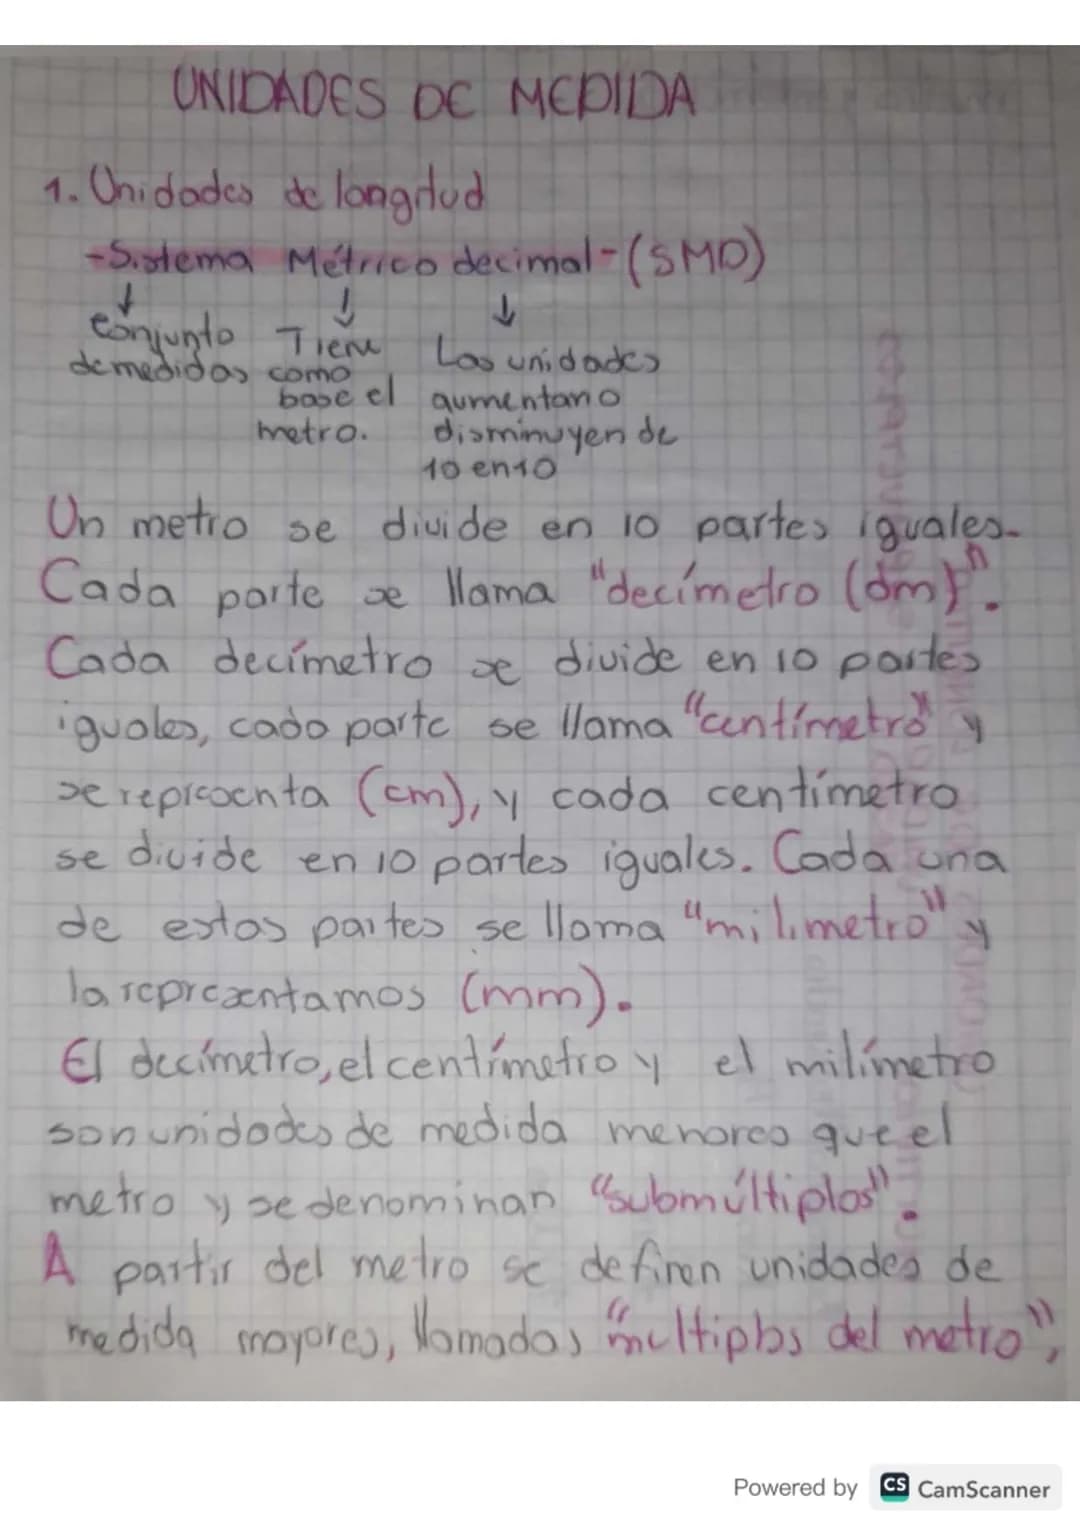 UNIDADES DE MEDIDA
1. Unidades de longitud
-Sistema Métrico decimal-(SMD)
↓ ↓ ↓
Conjunto Tiene Las unidades
de medidas como aumentan o
base el disminuyen de
metro. 10 en 10
Un metro se divide en 10 partes iguales.
Cada parte se llama "decímetro (dm)".
Cada decímetro se divide en 10 partes
iguales, cada parte se llama "centímetro" y
se representa (cm), y cada centímetro
se divide en 10 partes iguales. Cada una
de estas partes se llama "milimetro" y
la representamos (mm).
El decímetro, el centímetro y el milímetro
son unidades de medida menores que el
metro y se denominan "submúltiplos".
A partir del metro se definen unidades de
medida mayores, llamadas "multiplos del metro",
Powered by CS CamScanner